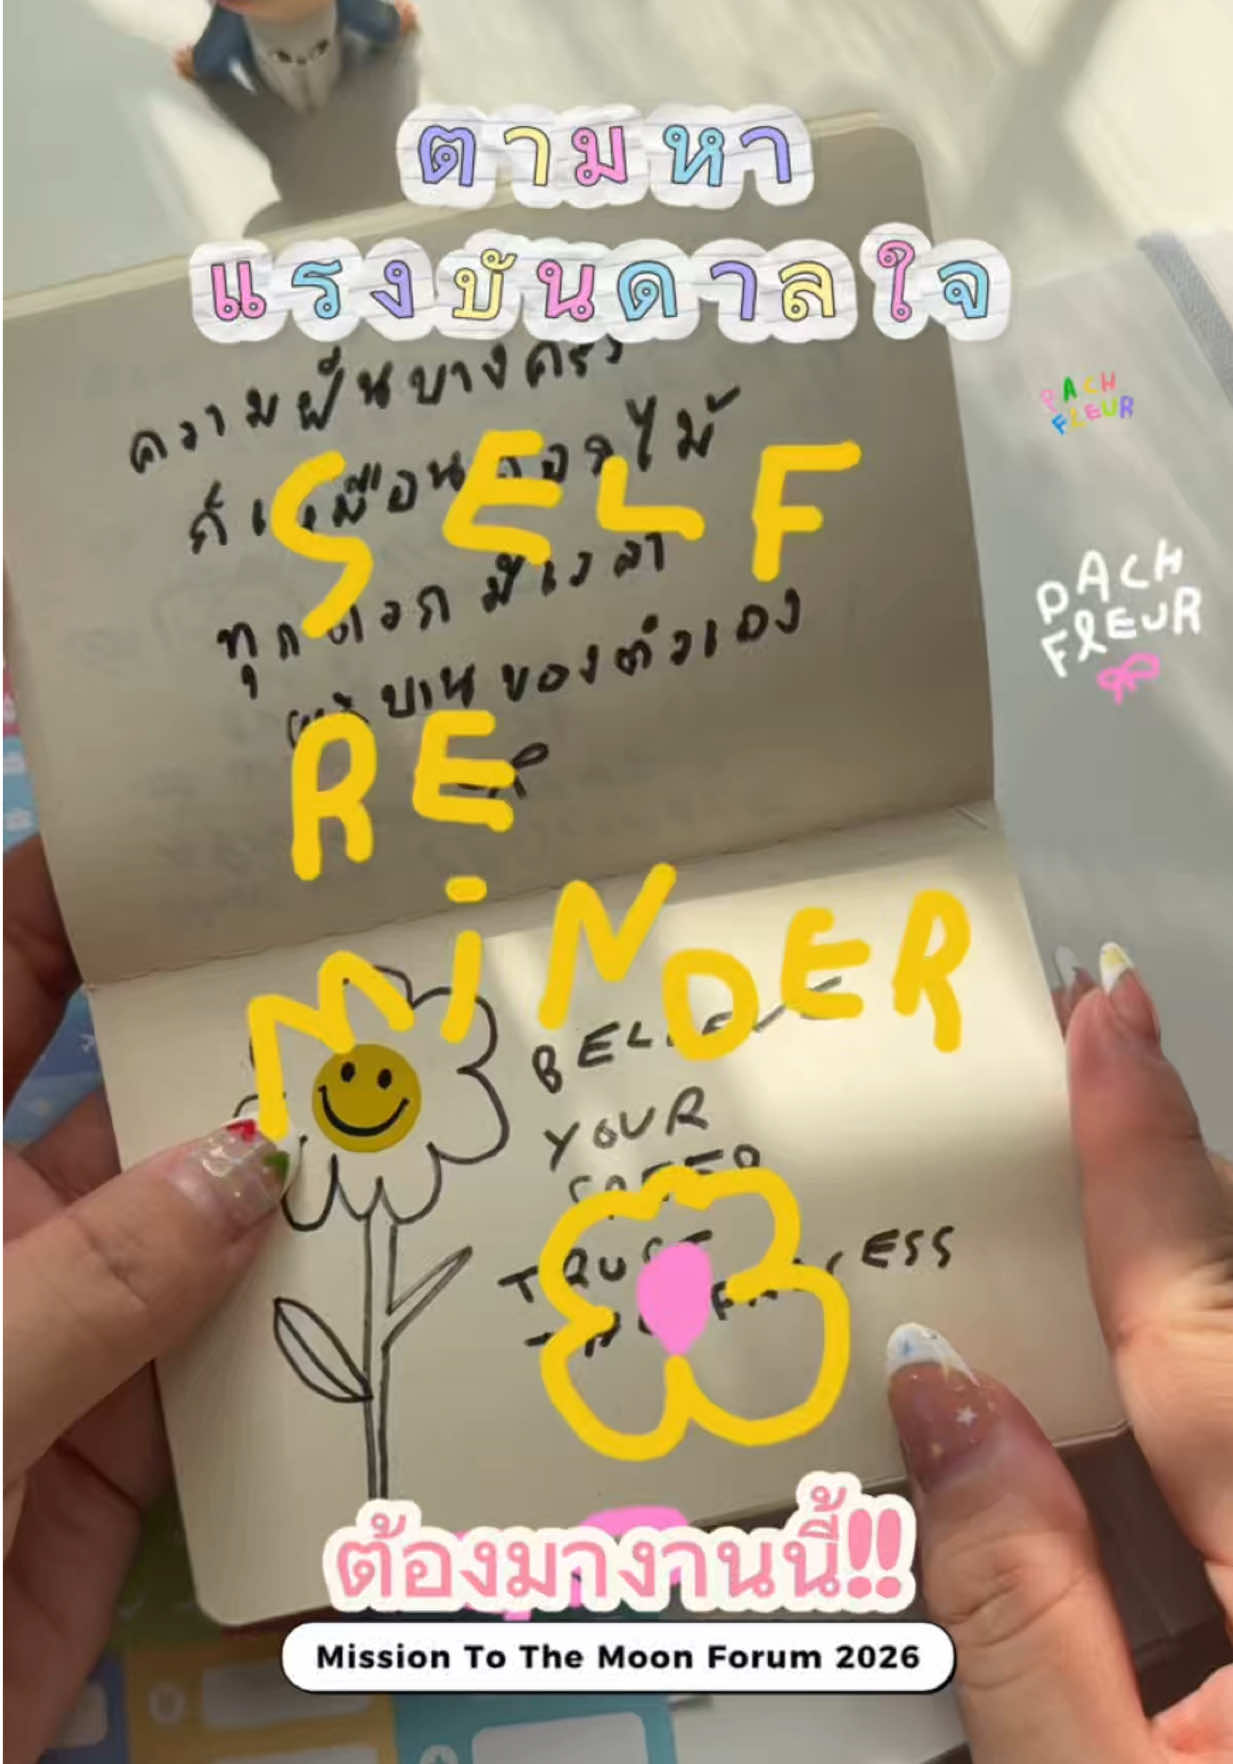 ตามหา
แรงบันดาลใจ
ความฝันบางครั้ง
ก็เหมือนดอกไม้
ทุกดอกมีเวลา
บานของตัวเอง
SELF
RE
MiNDER
PACH
FLEUR
PACH
FLEUR
BELIEVE
YOUR
SPEED
TRUST
THE PROCESS
ต้องมางานนี้!!
Mission To The Moon Forum 2026